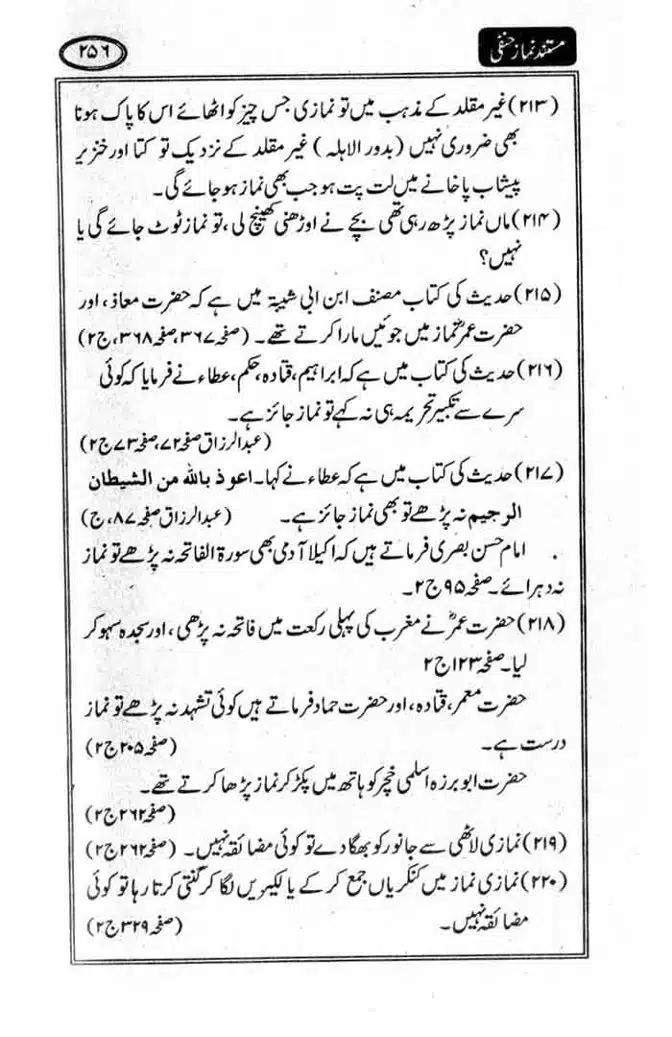 مستند نماز حنفی
۲۵۶
(۲۱۳) غیر مقلد کے مذہب میں تو نمازی جس چیز کو اٹھائے اس کا پاک ہونا
بھی ضروری نہیں (بدور الاہلہ) غیر مقلد کے نزدیک تو کتا اور خنزیر
پیشاب پاخانے میں لت پت ہو جب بھی نماز ہو جائے گی۔
(۲۱۴) ماں نماز پڑھ رہی تھی بچے نے اوڑھنی کھینچ لی، تو نماز ٹوٹ جائے گی یا
نہیں؟
(۲۱۵) حدیث کی کتاب مصنف ابن ابی شیبۃ میں ہے کہ حضرت معاذ، اور
حضرت عمرؓ نماز میں جوئیں مارا کرتے تھے۔ (صفحہ ۳۶۷، صفحہ ۳۶۸، ج۲)
(۲۱۶) حدیث کی کتاب میں ہے کہ ابراہیم، قتادہ، حکم، عطاء نے فرمایا کہ کوئی
سرے سے تکبیر تحریمہ ہی نہ کہے تو نماز جائز ہے۔
(عبدالرزاق صفحہ ۷۲، صفحہ ۷۳ ج۲)
(۲۱۷) حدیث کی کتاب میں ہے کہ عطاء نے کہا۔ اعوذ بالله من الشیطان
الرجیم نہ پڑھے تو بھی نماز جائز ہے۔ (عبدالرزاق صفحہ ۸۷، ج)
. امام حسن بصری فرماتے ہیں کہ اکیلا آدمی بھی سورۃ الفاتحہ نہ پڑھے تو نماز
نہ دہرائے۔ صفحہ ۹۵ ج۲۔
(۲۱۸) حضرت عمرؓ نے مغرب کی پہلی رکعت میں فاتحہ نہ پڑھی، اور سجدہ سہو کر
لیا۔ صفحہ ۱۲۳ ج۲
حضرت معمر، قتادہ، اور حضرت حماد فرماتے ہیں کوئی تشہد نہ پڑھے تو نماز
درست ہے۔ (صفحہ ۲۰۵ ج۲)
حضرت ابو برزہ اسلمی خچر کو ہاتھ میں پکڑ کر نماز پڑھا کرتے تھے۔
(صفحہ ۲۶۲ ج۲)
(۲۱۹) نمازی لاٹھی سے جانور کو بھگا دے تو کوئی مضائقہ نہیں۔ (صفحہ ۲۶۲ ج۲)
(۲۲۰) نمازی نماز میں کنکریاں جمع کر کے یا لکیریں لگا کر گنتی کرتا رہا تو کوئی
مضائقہ نہیں۔ (صفحہ ۳۲۹ ج۲)